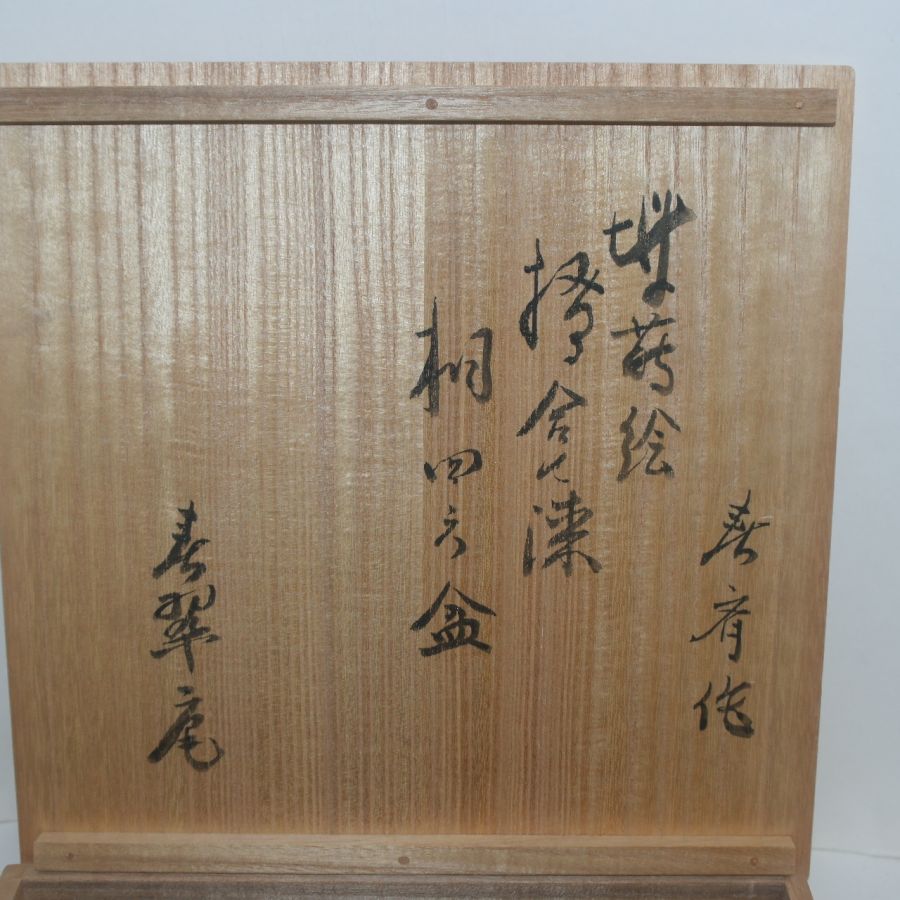 春斉作
蒔絵
掻合せ漆
桐四方盆
春翠庵